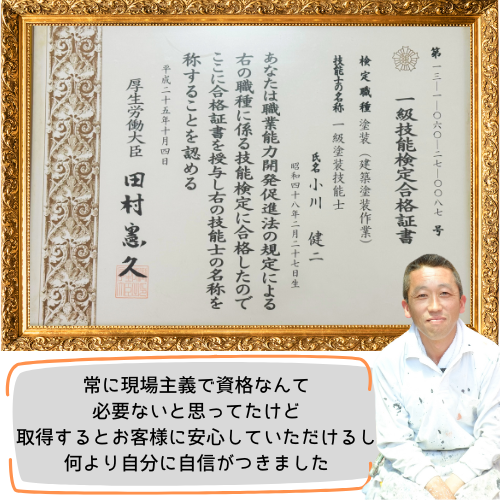 第一三―一―〇六〇―二七―〇〇八七号
一級技能検定合格証書
検定職種 塗装(建築塗装作業)
技能士の名称 一級塗装技能士
氏名 小川 健二
昭和四十八年二月二十七日生
あなたは職業能力開発促進法の規定による
右の職種に係る技能検定に合格したので
ここに合格証書を授与し右の技能士の名称を
称することを認める
平成二十五年十月四日
厚生労働大臣 田村憲久
常に現場主義で資格なんて
必要ないと思ってたけど
取得するとお客様に安心していただけるし
何より自分に自信がつきました